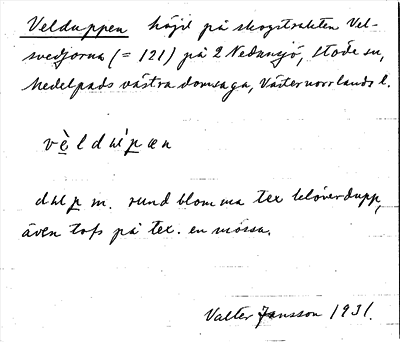 Velduppen höjd på skogstrakten Vel-
svedjorna (= 121) på 2 Nedansjö, Stöde sn,
Medelpads västra domsaga, Västernorrlands l.
m. rund blomma tex klöverdupp,
även tofs på tex. en mössa.
Valter Jansson 1931.